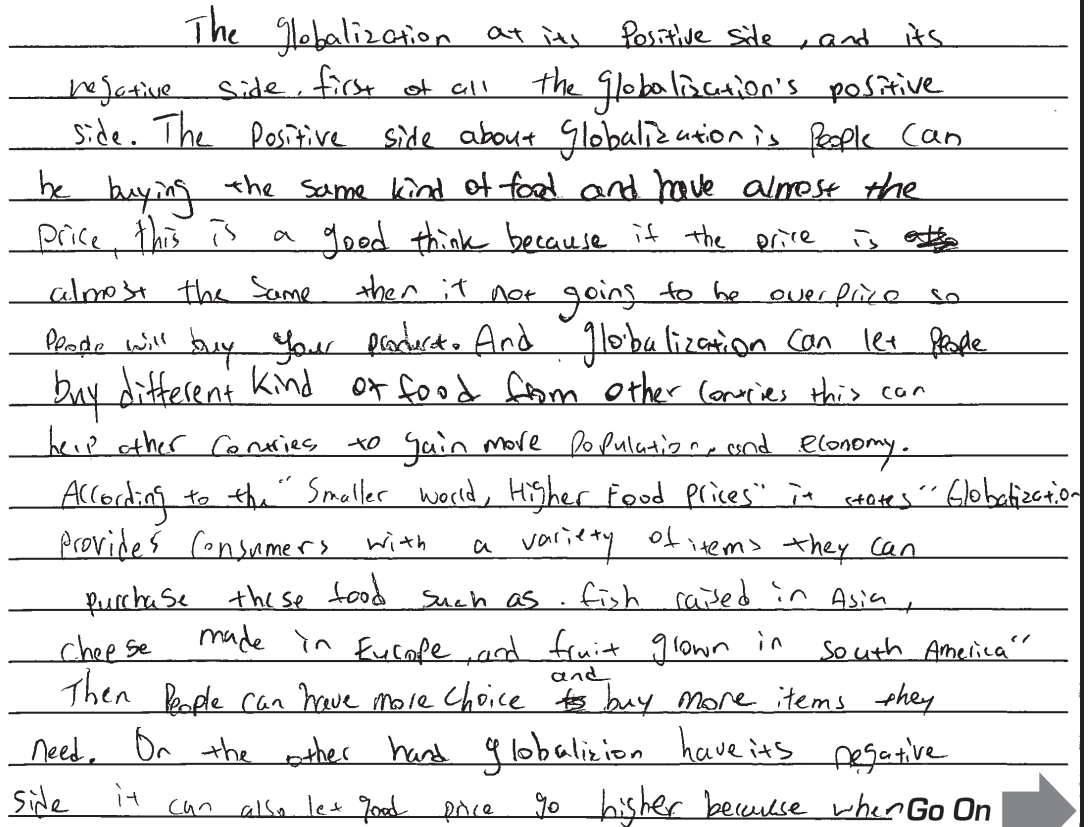 The globalization at its Positive side, and its
negative side. first of all the globalization's positive
side. The Positive side about globalization is People can
be buying the same kind of food and have almost the
price, this is a good think because if the price is
almost the same then it not going to be overprice so
People will buy your product. And globalization can let People
buy different kind of food from other Contries this can
help other Contries to gain more Population, and economy.
According to the "Smaller world, Higher Food Prices" it states "Globalization
provides Consumers with a variety of items they can
purchase these food such as. fish raised in Asia,
cheese made in Europe, and fruit grown in South America"
Then People can have more choice and buy more items they
need. On the other hand globalizion have its negative
side it can also let food price go higher because when Go On